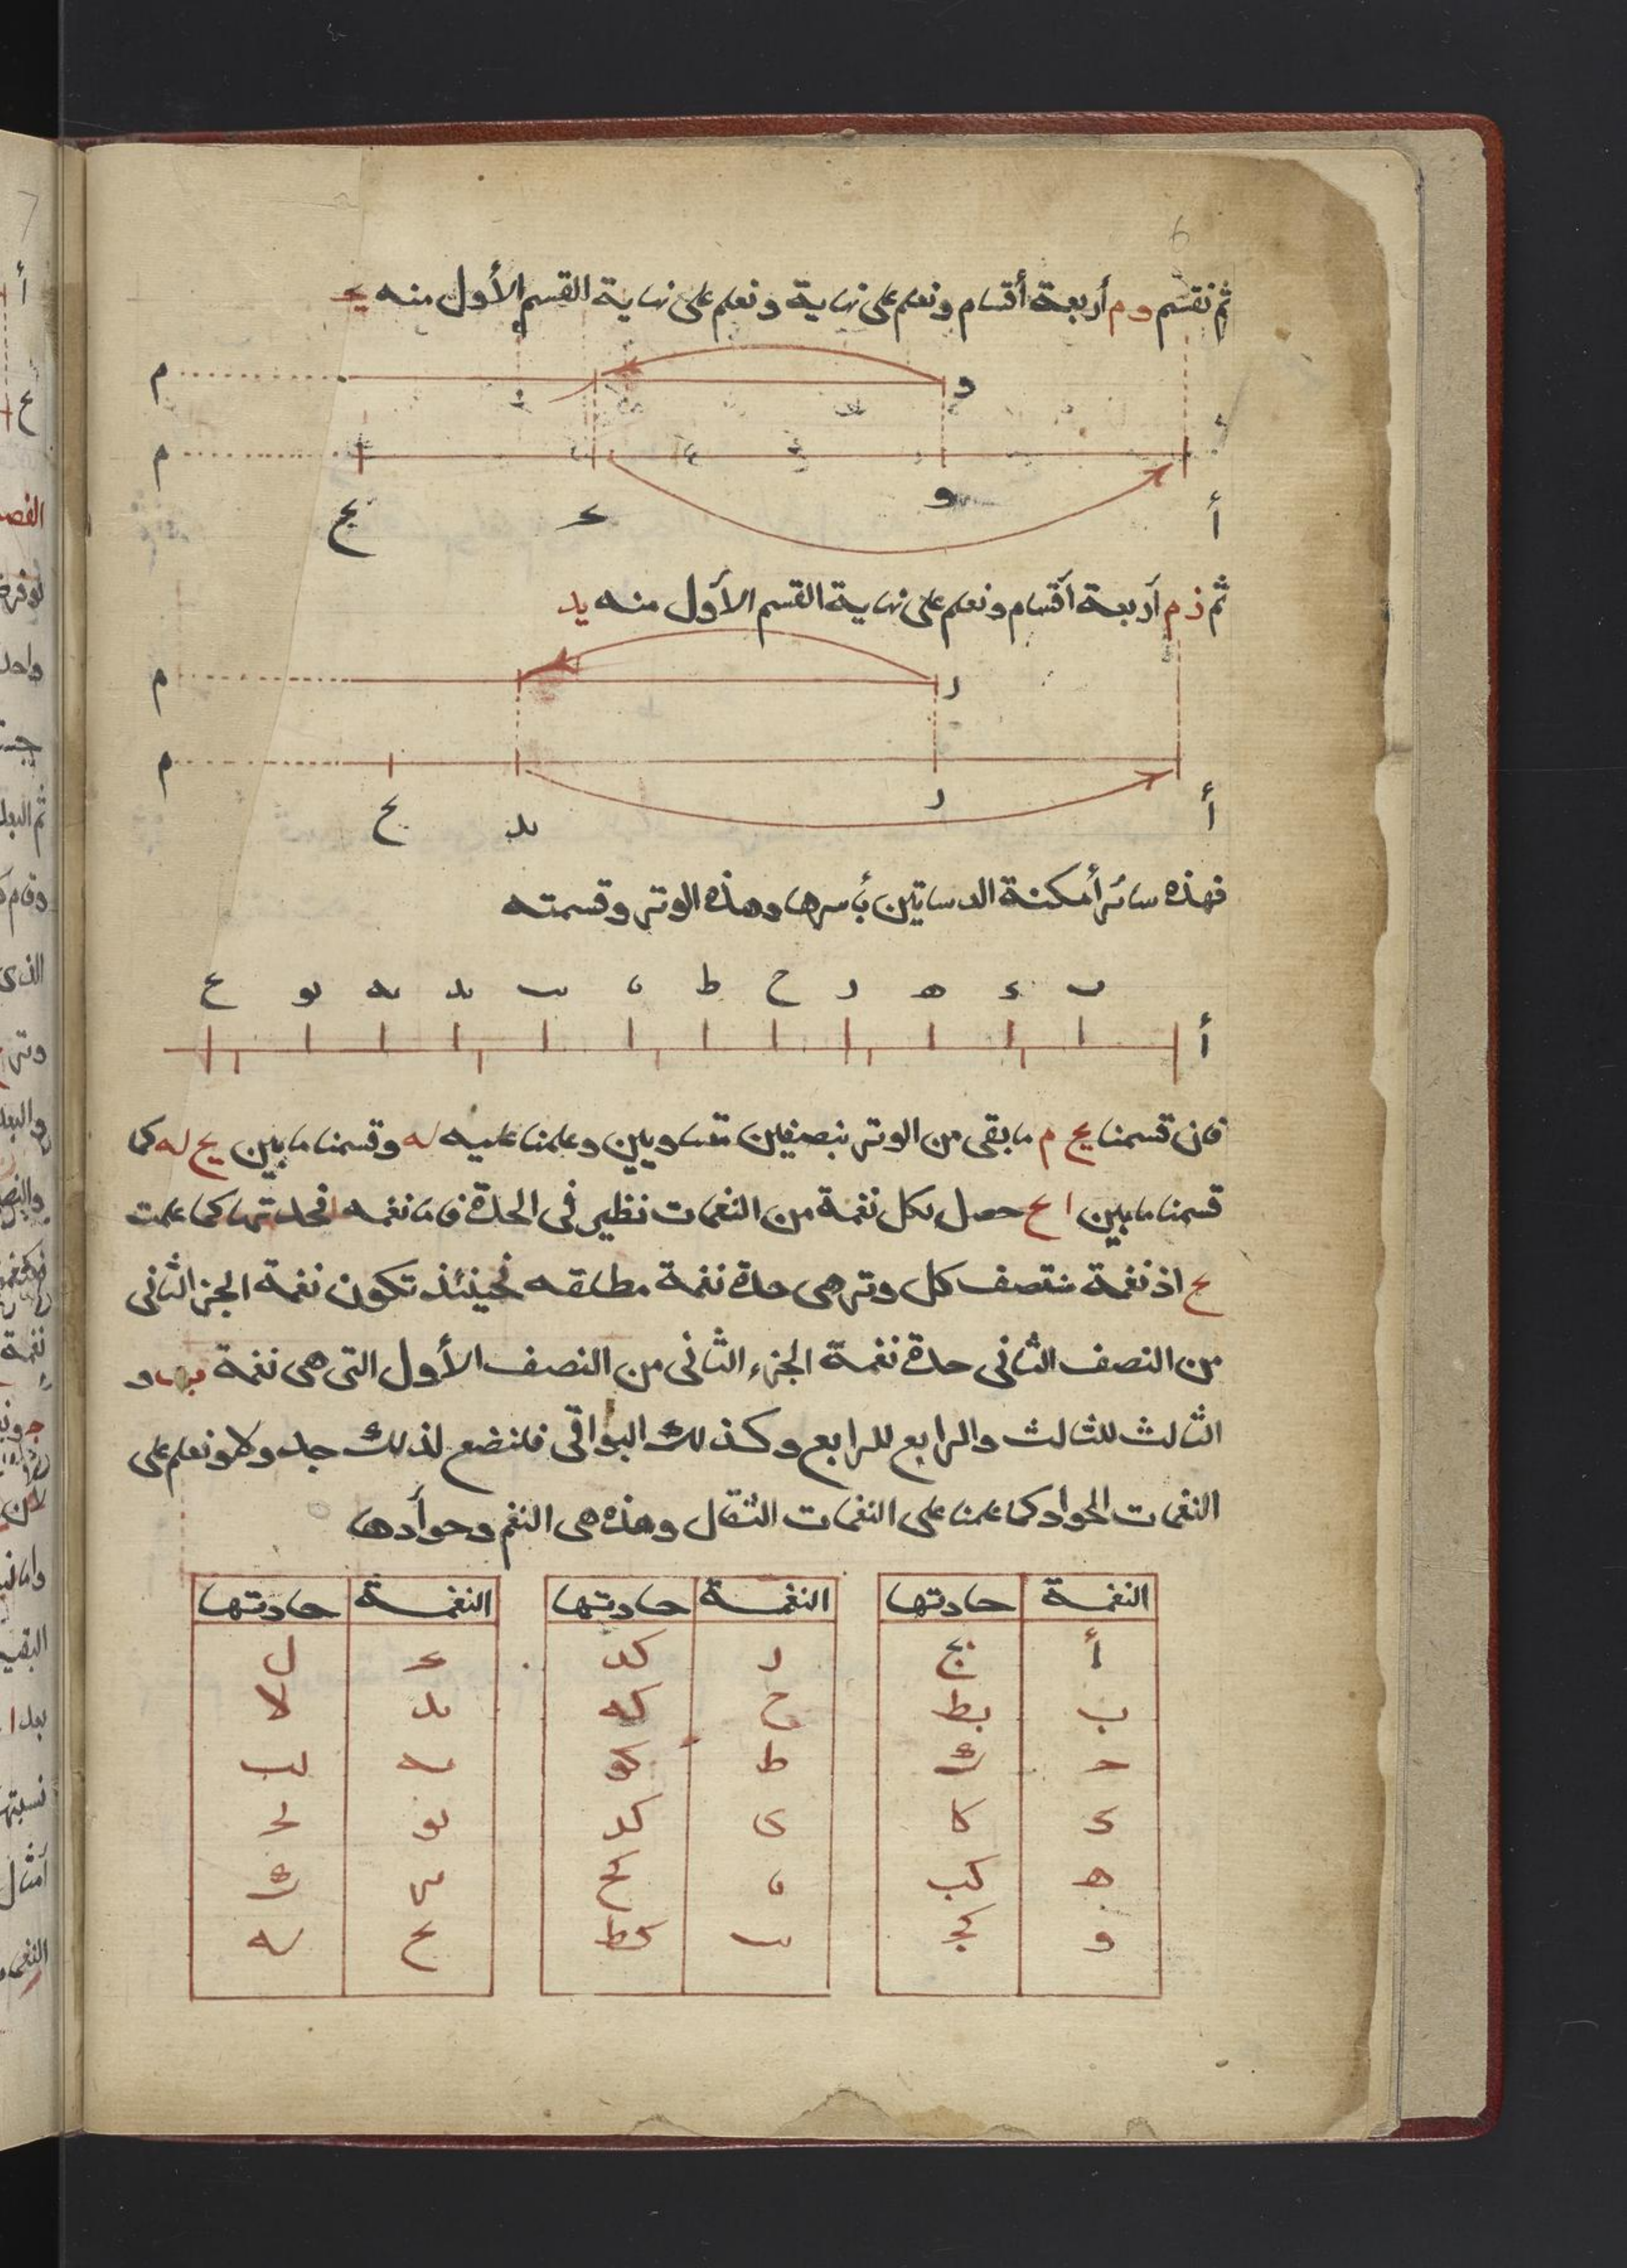 6
ثم نقسم و م أربعة أقسام ونعلم على نهاية ونعلم على نهاية القسم الأول منه يج
و م
م
أ و يج يح
ثم ز م أربعة أقسام ونعلم على نهاية القسم الأول منه يد
ر م
م
أ ر يد يح
فهذه سائر أمكنة الدساتين بأسرها وهذه الوتر وقسمته
ب د ه ر ح ط يا يب يد يه يو يح
أ
فان قسمنا يح م ما بقى من الوتر بنصفين متساويين وعلمنا عليه له وقسمنا ما بين يح له كما
قسمنا ما بين ا يح حصل لكل نغمة من النغمات نظير فى الحدة فاما نغمه ا فحدتها كما علمت
يح اذ نغمة منتصف كل وتر هى حدة نغمة مطلقه فحينئذ تكون نغمة الجزء الثانى
من النصف الثانى حدة نغمة الجزء الثانى من النصف الأول التى هى نغمة ب و
الثالث للثالث والرابع للرابع وكذلك البواقى فلنضع لذلك جدولا ونعلم على
النغمات الحواد كما علمنا على النغمات الثقال وهذه هى النغم وحوادها
النغمة حادتها النغمة حادتها النغمة حادتها
أ يح ر كد يج ل
ب يط ح كه يد لا
ج ك ط كو يه لب
د كا ى كد يو لج
ه كب يا كح يز لد
و كج يب كط يح له